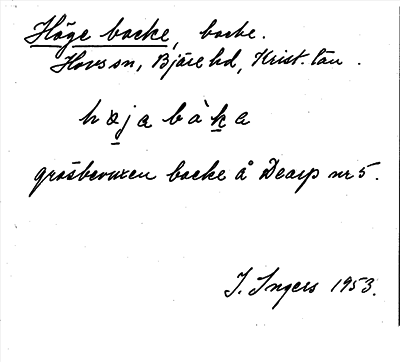 Höge backe, backe.
Hovs sn, Bjäre hd, Krist. län.
høja bàka
gräsbevuxen backe å Dearp nr 5.
I. Ingers 1953.